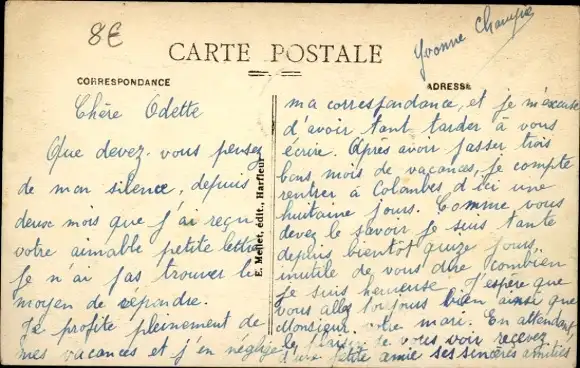 8€
Yvonne
CARTE POSTALE
CORRESPONDANCE
ADRESSE
Chère Odette
Que devez-vous pensez
de mon silence, depuis
deux mois que j'ai reçu
votre aimable petite lettre
je n'ai pas trouver le
moyen de répondre.
Je profite pleinement de
mes vacances et j'en néglige
E. Mellet, édit., Harfleur
ma correspondance, et je m'excuse
d'avoir tant tarder à vous
écrire. Après avoir passer trois
bons mois de vacances, je compte
rentrer à Colombes d'ici une
huitaine jours. Comme vous
devez le savoir je suis tante
depuis bientôt quze jours,
inutile de vous dire combien
je suis heureuse. J'espère que
vous allez toujours bien ainsi que
Monsieur votre mari. En attendant
le plaisir de vous voir recevez
d'une petite amie ses sincères amitiés